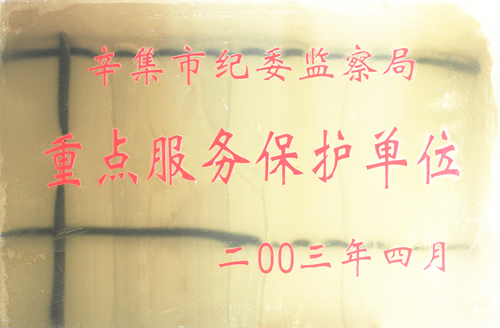 辛集市纪委监察局
重点服务保护单位
二00三年四月